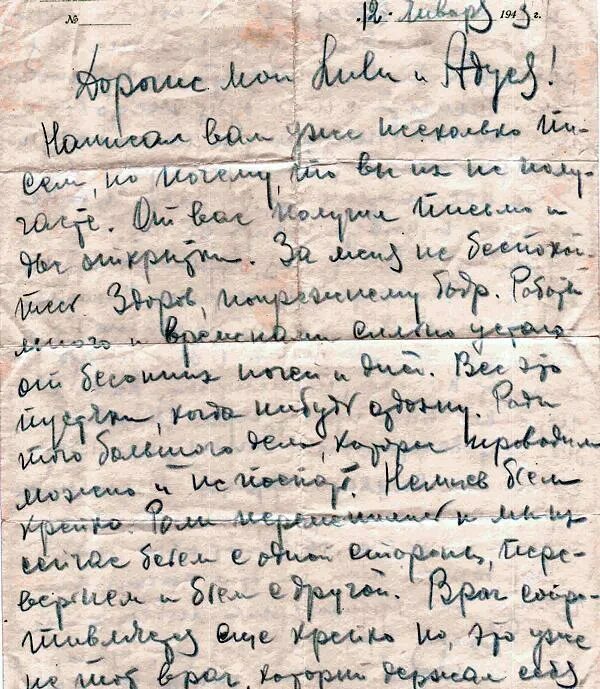 № 12 Января 1943 г.
Дорогие мои Ливи и Адуся!
Написал вам уже несколько пи-
сем, но почему, то вы их не полу-
чаете. От вас получил письмо и
две открытки. За меня не беспокой-
тесь Здоров, попрежнему бодр. Работы
много и временами сильно устаю
от бесонных ночей и дней. Все это
пустяки, когда нибудь отдохну. Ради
того большого дела, которое проводим
можно и не поспать. Немцев бьем
крепко. Роли переменились и мы их
сейчас бьем с одной стороны, пере-
вернем и бьем с другой. Враг сопро-
тивляется еще крепко но, это уже
не тот враг, который держал себя